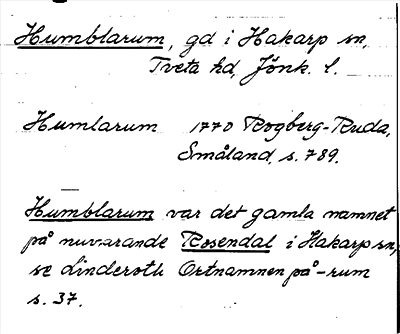 Humblarum, gd i Hakarp sn,
Tveta hd, Jönk. l.
Humlarum 1770 Rogberg-Ruda,
Småland, s. 789.
Humblarum var det gamla namnet
på nuvarande Rosendal i Hakarp sn,
se Linderoth Ortnamnen på -rum
s. 37.